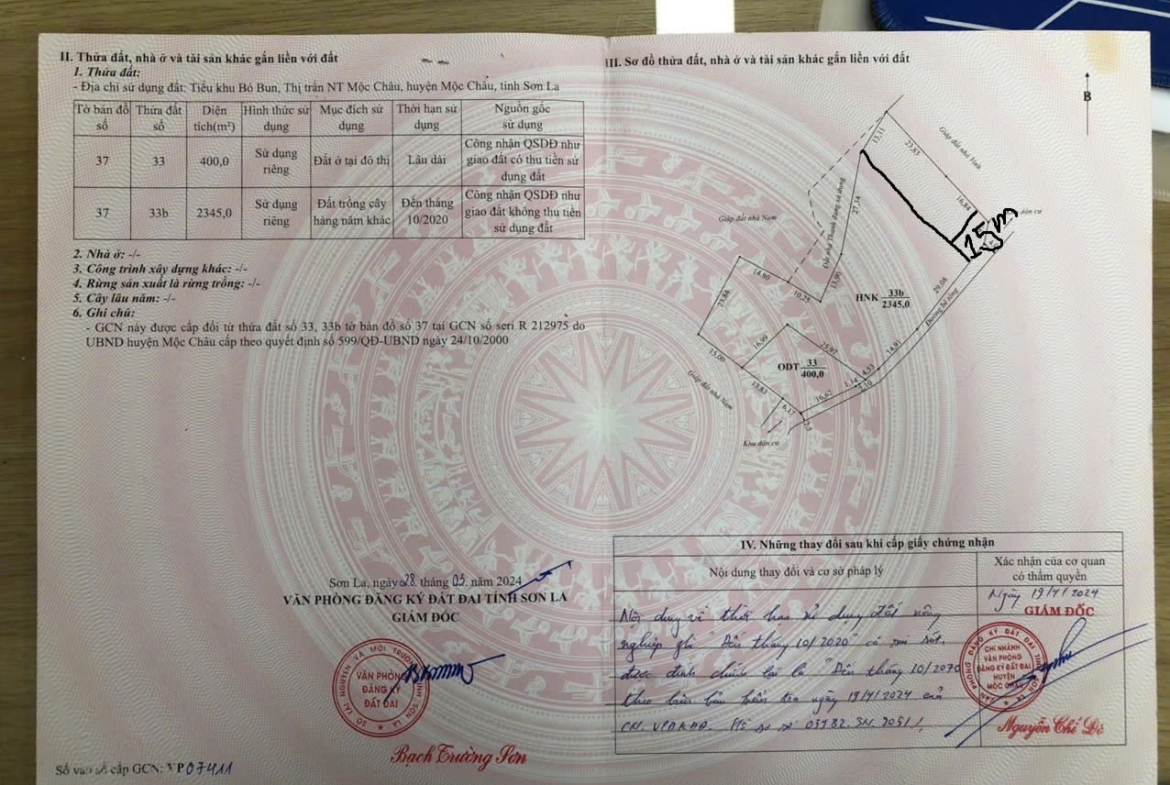 II. Thửa đất, nhà ở và tài sản khác gắn liền với đất
1. Thửa đất:
- Địa chỉ sử dụng đất: Tiểu khu Bó Bun, Thị trấn NT Mộc Châu, huyện Mộc Châu, tỉnh Sơn La
Tờ bản đồ số | Thửa đất số | Diện tích(m²) | Hình thức sử dụng | Mục đích sử dụng | Thời hạn sử dụng | Nguồn gốc sử dụng
37 | 33 | 400,0 | Sử dụng riêng | Đất ở tại đô thị | Lâu dài | Công nhận QSDĐ như giao đất có thu tiền sử dụng đất
37 | 33b | 2345,0 | Sử dụng riêng | Đất trồng cây hàng năm khác | Đến tháng 10/2020 | Công nhận QSDĐ như giao đất không thu tiền sử dụng đất
2. Nhà ở: -/-
3. Công trình xây dựng khác: -/-
4. Rừng sản xuất là rừng trồng: -/-
5. Cây lâu năm: -/-
6. Ghi chú:
- GCN này được cấp đổi từ thửa đất số 33, 33b tờ bản đồ số 37 tại GCN số seri R 212975 do
UBND huyện Mộc Châu cấp theo quyết định số 599/QĐ-UBND ngày 24/10/2000
Sơn La, ngày 28 tháng 03 năm 2024
VĂN PHÒNG ĐĂNG KÝ ĐẤT ĐAI TỈNH SƠN LA
GIÁM ĐỐC
VĂN PHÒNG
ĐĂNG KÝ
ĐẤT ĐAI
Bạch Trường Sơn
Số vào sổ cấp GCN: VP07411
III. Sơ đồ thửa đất, nhà ở và tài sản khác gắn liền với đất
B
13,11
23,83
Giáp đất nhà Vinh
16,84
dân cư
15m
27,34
Giáp đất nhà Nam
13,90
14,80
10,25
HNK 33b
2345,0
29,08
Đường bê tông
14,91
16,99
23,97
ODT 33
400,0
4,33
1,14
16,67
13,06
13,83
6,17
Giáp đất nhà Nam
Khu dân cư
IV. Những thay đổi sau khi cấp giấy chứng nhận
Nội dung thay đổi và cơ sở pháp lý
Xác nhận của cơ quan
có thẩm quyền
Ngày 19/4/2024
GIÁM ĐỐC
Nội dung về thời hạn sử dụng đất nông
nghiệp ghi "Đến tháng 10/2020" có sai sót,
được đính chính lại là "Đến tháng 10/2070
theo biên bản kiểm tra ngày 19/4/2024 của
CN. VPĐKĐĐ. Hồ sơ số 03982.
CHI NHÁNH
VĂN PHÒNG
ĐĂNG KÝ ĐẤT ĐAI
HUYỆN
MỘC CHÂU
Nguyễn Chí